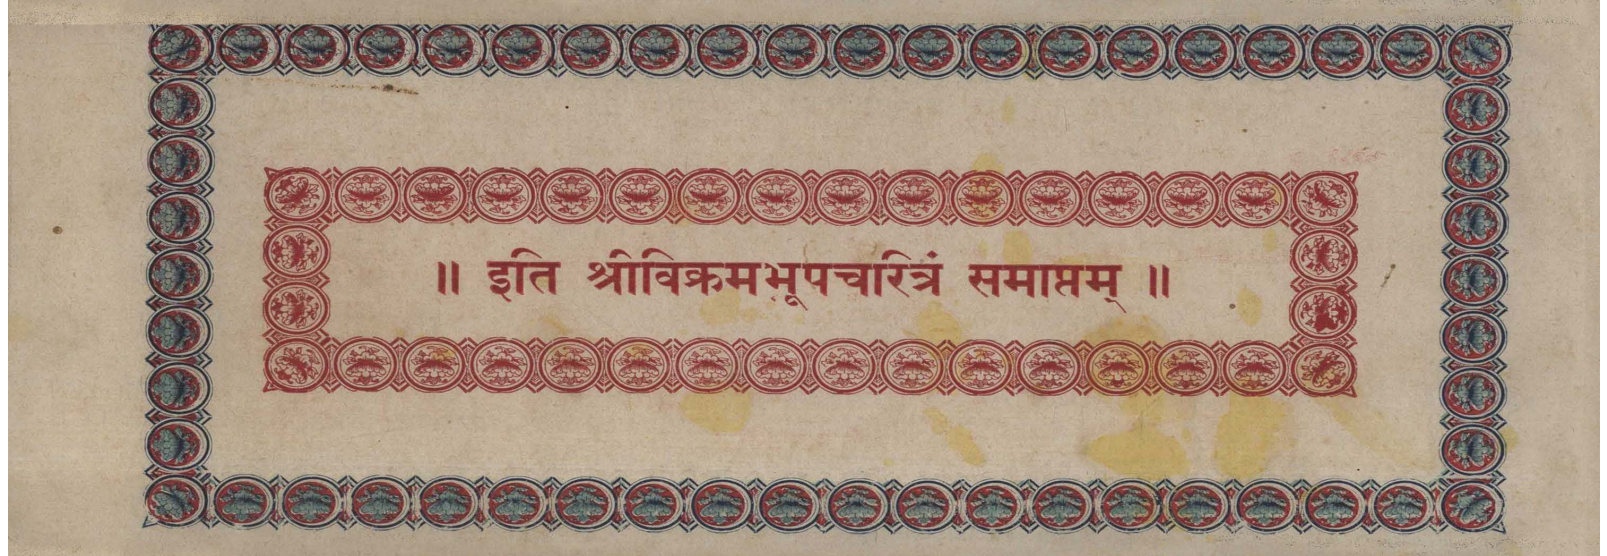 ॥ इति श्रीविक्रमभूपचरित्रं समाप्तम् ॥